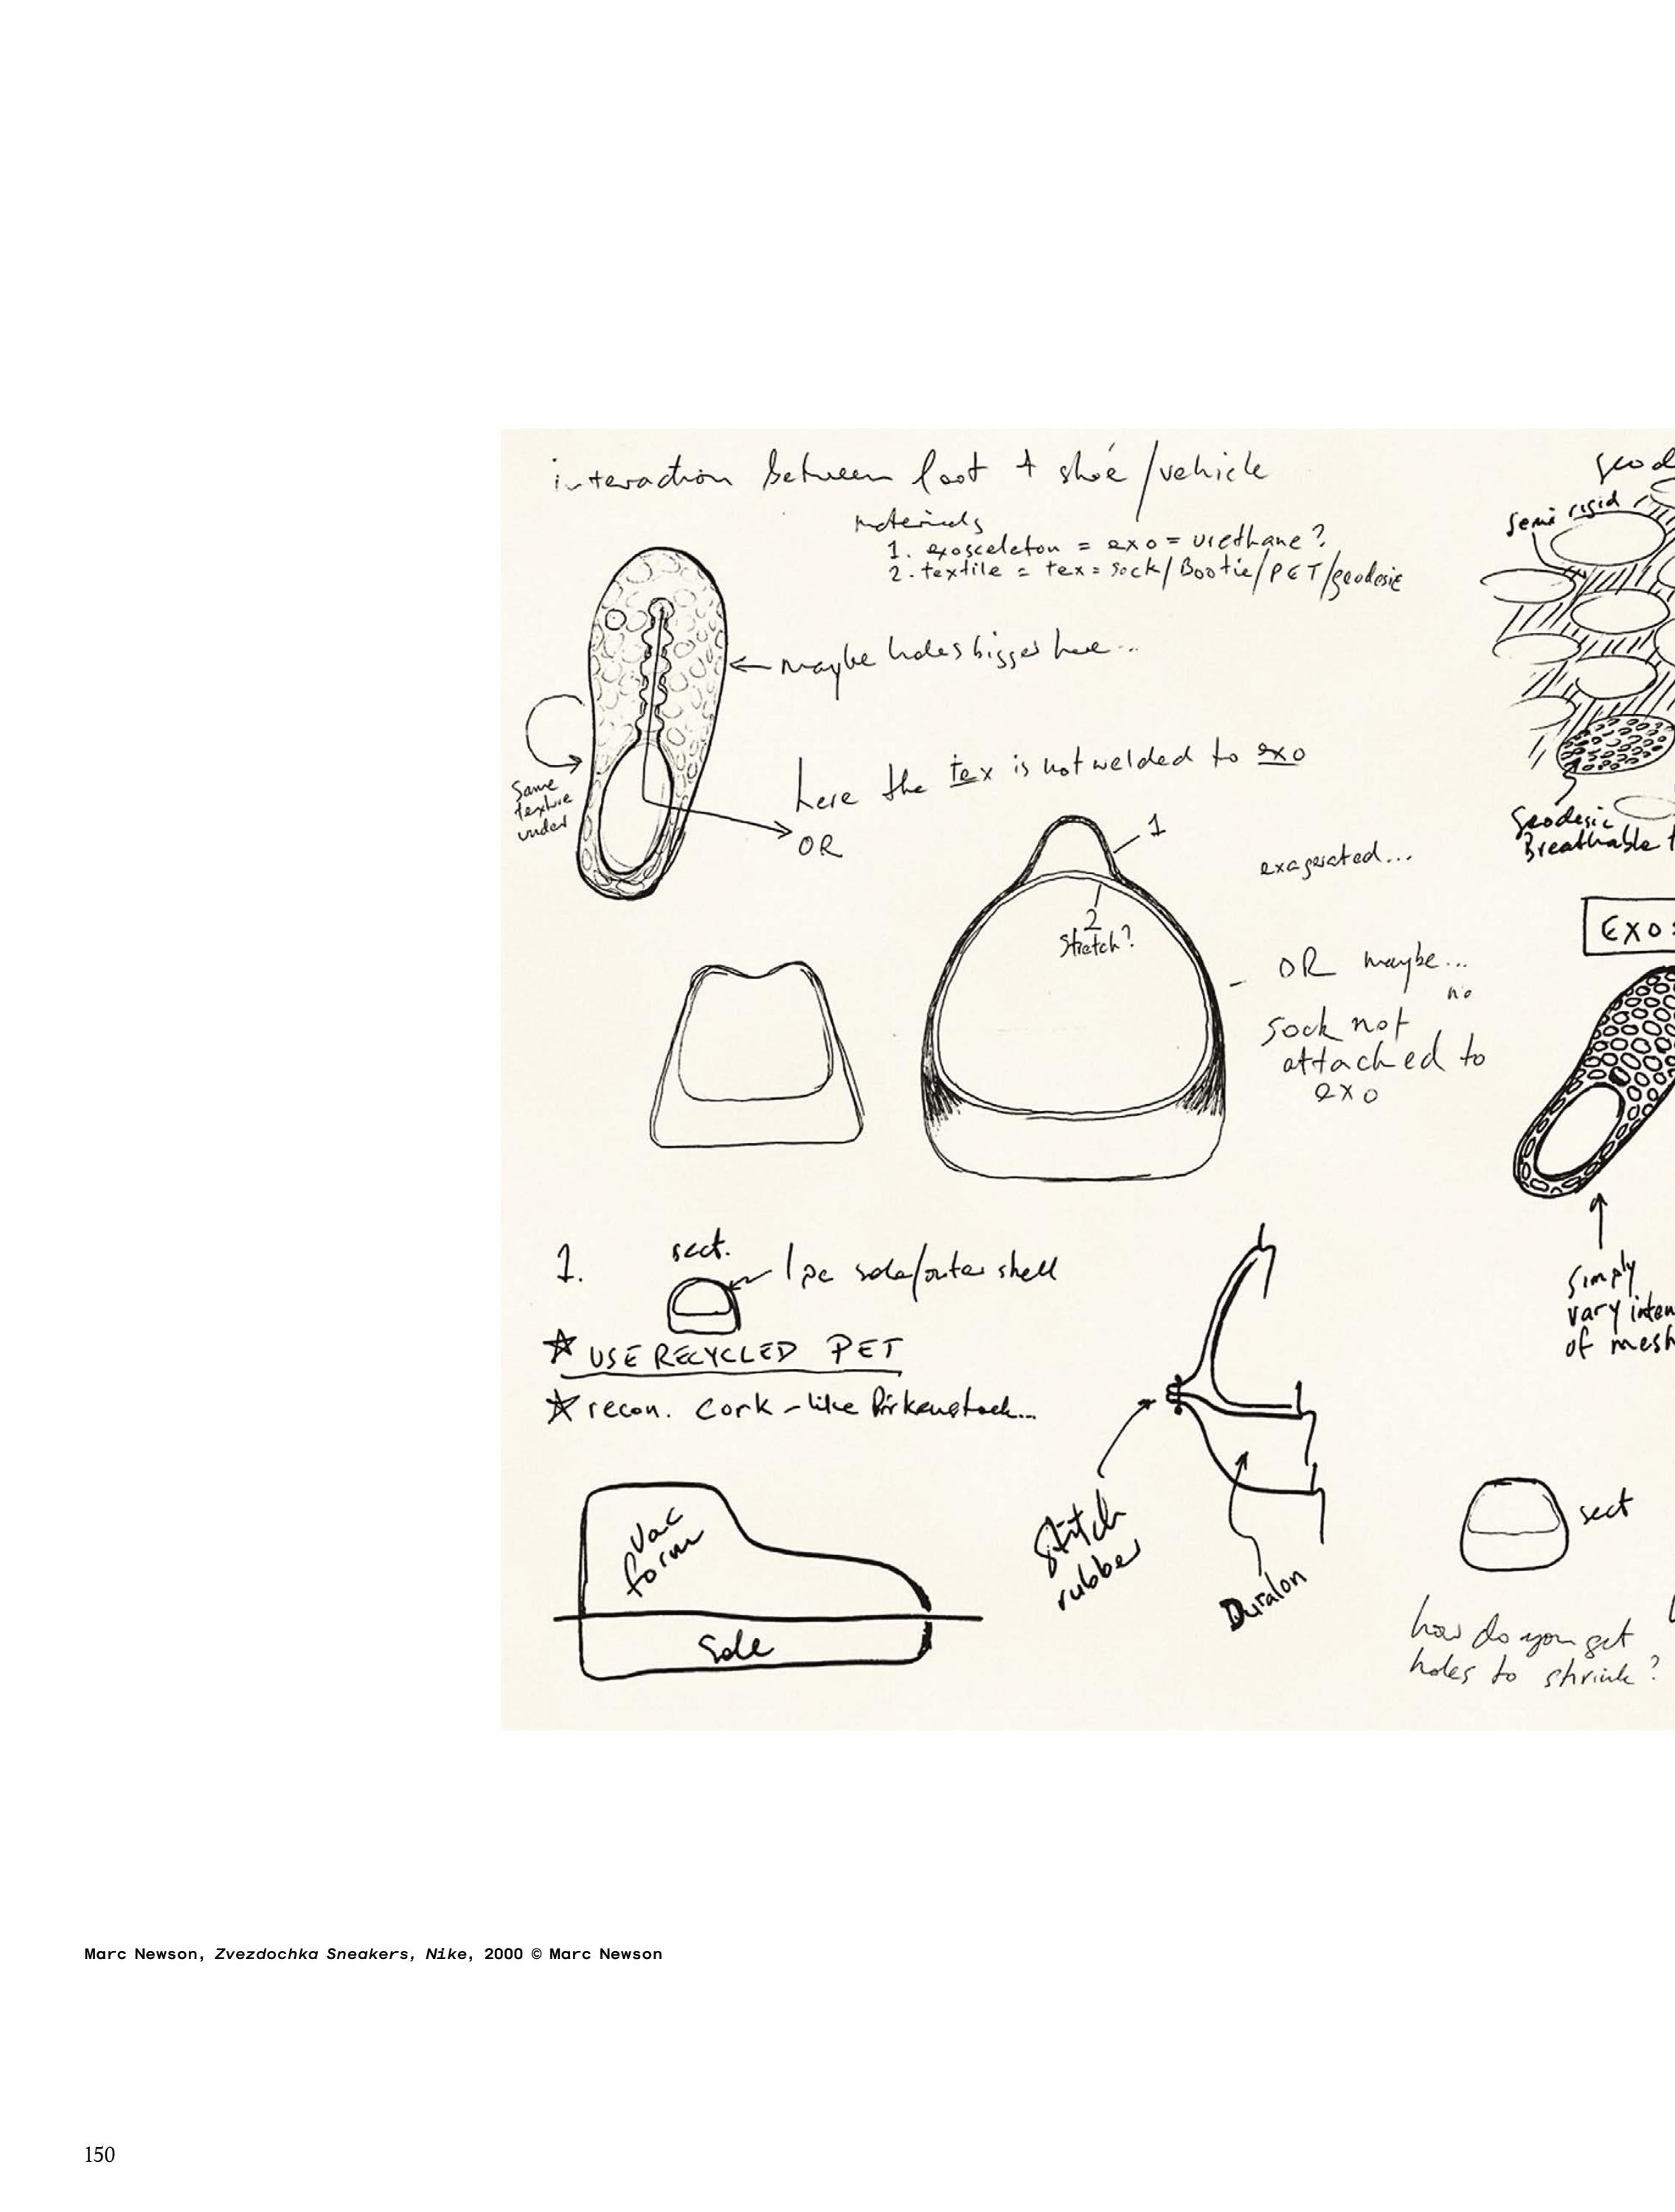 interaction between foot + shoe/vehicle
materials
1. exosceleton = exo = urethane?
2. textile = tex = sock/Bootie/PET/geodesic
maybe holes bigger here...
Same
texture
under
here the tex is not welded to exo
OR
1
2
Stretch?
exagerated...
OR maybe...
no
sock not
attached to
exo
semi rigid
Geodesic
Breathable
EXO
Simply
vary
of mesh
1.
sect.
1 pc sole/outer shell
☆ USE RECYCLED PET
☆ recon. Cork - like Birkenstock...
Vac
form
Sole
Stitch
rubber
Duralon
sect
how do you get
holes to shrink?
Marc Newson, Zvezdochka Sneakers, Nike, 2000 © Marc Newson
150